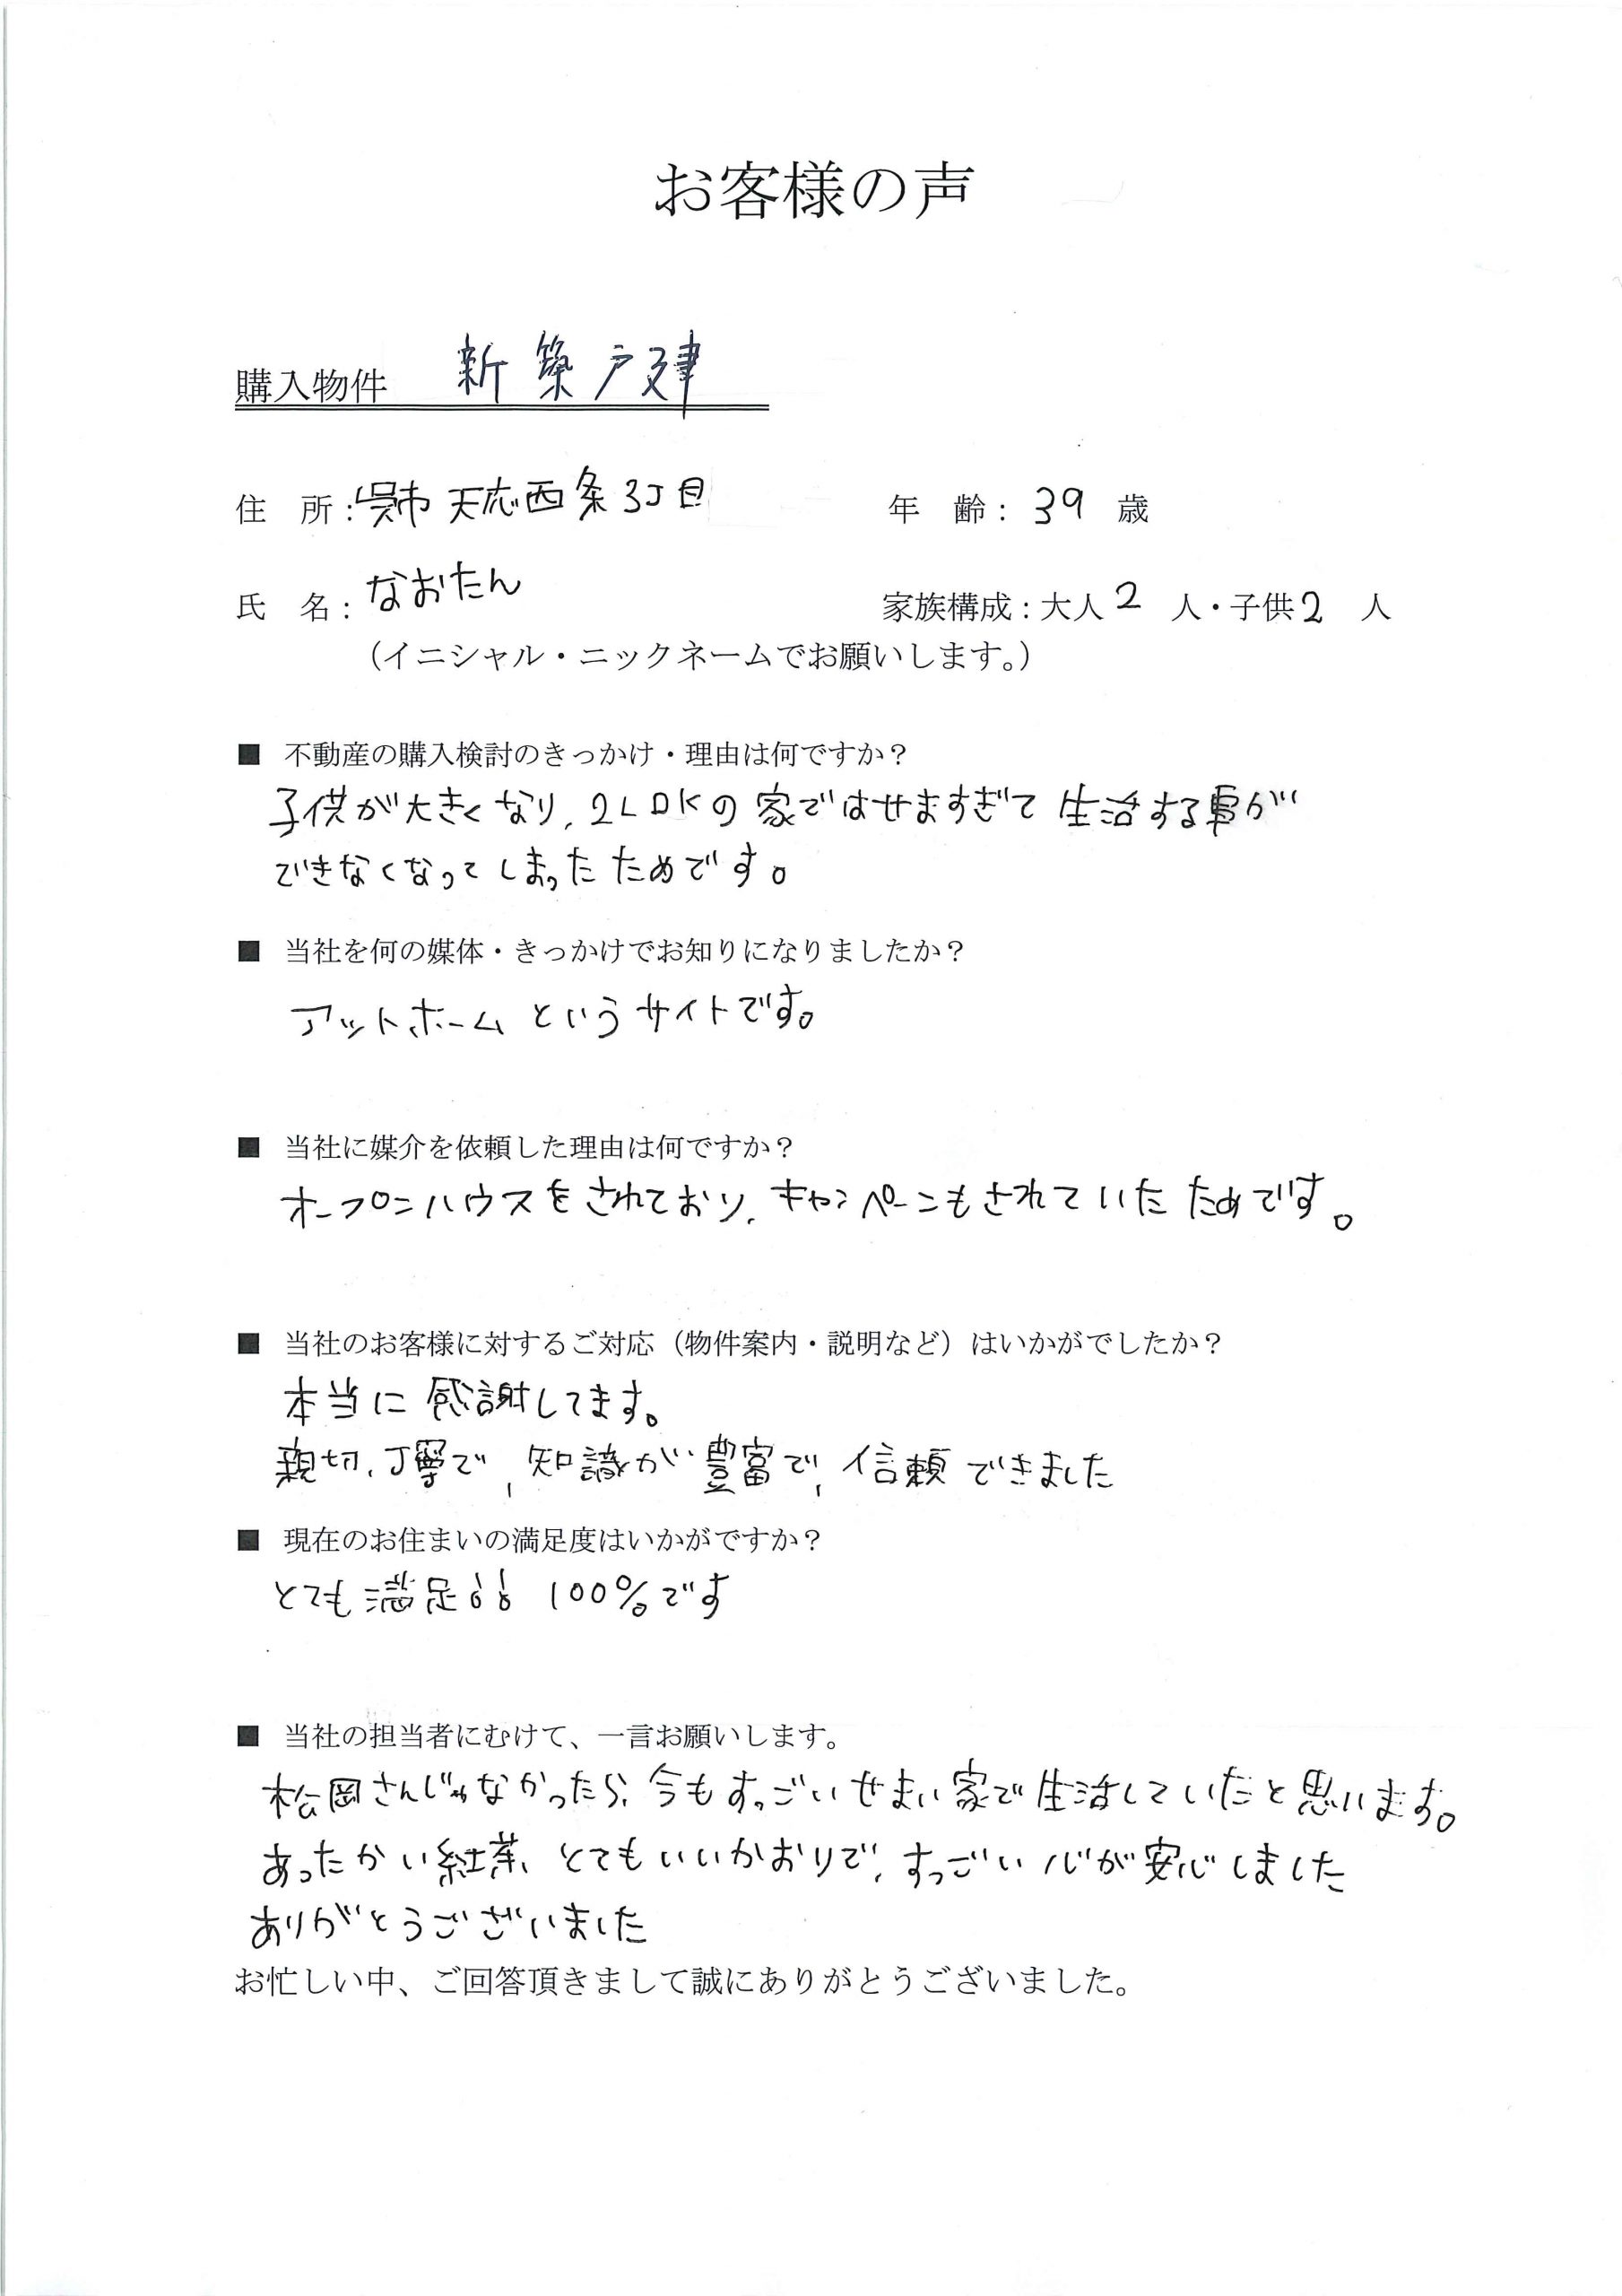 お客様の声
購入物件 新築戸建
住 所：呉市 天応西条3丁目 年 齢：39 歳
氏 名：なおたん 家族構成：大人2 人・子供2 人
（イニシャル・ニックネームでお願いします。）
■ 不動産の購入検討のきっかけ・理由は何ですか？
子供が大きくなり、2LDKの家ではせますぎて生活する事が
できなくなってしまったためです。
■ 当社を何の媒体・きっかけでお知りになりましたか？
アットホームというサイトです。
■ 当社に媒介を依頼した理由は何ですか？
オープンハウスをされており、キャンペーンもされていたためです。
■ 当社のお客様に対するご対応（物件案内・説明など）はいかがでしたか？
本当に感謝してます。
親切、丁寧で、知識が豊富で、信頼できました
■ 現在のお住まいの満足度はいかがですか？
とても満足!! 100%です
■ 当社の担当者にむけて、一言お願いします。
松岡さんじゃなかったら、今もすっごいせまい家で生活していたと思います。
あったかい紅茶、とてもいいかおりで、すっごい心が安心しました
ありがとうございました
お忙しい中、ご回答頂きまして誠にありがとうございました。